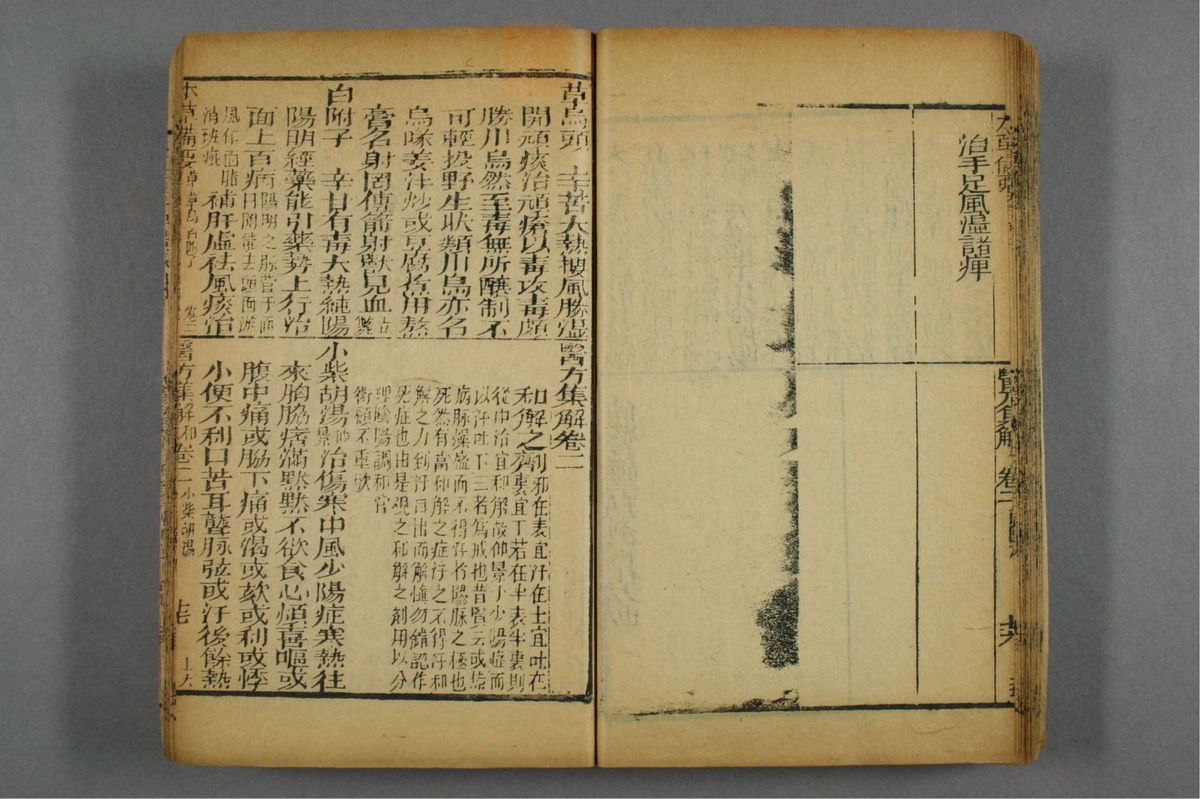 治手足風溫諸痺
醫方集解 卷二
草烏頭 辛苦大熱搜風勝濕
開頑痰治頑瘡以毒攻毒頗
勝川烏然至毒無所釀制不
可輕投野生狀類川烏亦名
烏喙姜汁炒或豆腐煮用熬
膏名射罔傅箭射獸見血立斃
白附子 辛甘有毒大熱純陽
陽明經藥能引藥勢上行治
面上百病陽明之脉營于面白附能去頭面遊
風作面脂消斑疵補肝虛祛風痰治
本草備要 草 草烏 白附子 卷二
醫方集解卷二
和解之劑邪在表宜汗在上宜吐在
裏宜下若在半表半裏則
從中治宜和解故仲景于少陽症而
以汗吐下三者為戒也昔賢云或熱
病脉躁盛而不得汗者陽脉之極也
死然有當和解之症汗之不得汗和
解之力到汗自出而解慎勿錯認作
死症也由是觀之和解之劑用以分
理陰陽調和營
衛顧不重歟
小柴胡湯仲景治傷寒中風少陽症寒熱往
來胸脇痞滿默默不欲食心煩喜嘔或
腹中痛或脇下痛或渴或欬或利或悸
小便不利口苦耳聾脉弦或汗後餘熱
醫方集解 和 卷二 小柴胡湯